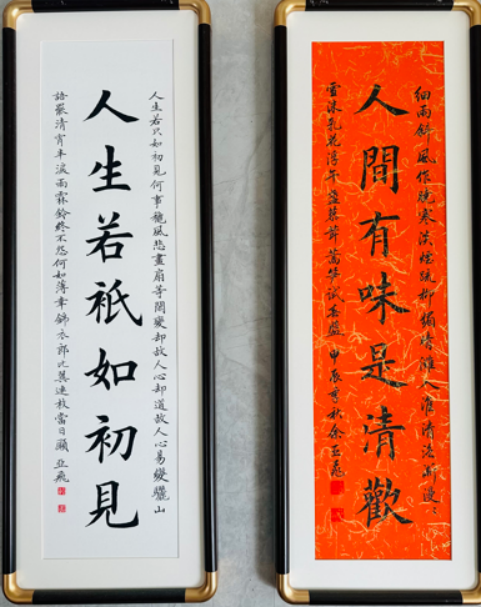 細雨斜風作曉寒淡煙疏柳媚晴灘入淮清洛漸漫〻
人間有味是清歡
雪沫乳花浮午盞蓼茸蒿筍試春盤 甲辰季秋余亞飛
人生若只如初見何事穐風悲畫扇等閒變却故人心却道故人心易變驪山
人生若祇如初見
語罷清宵半淚雨霖鈴終不怨何如薄幸錦衣郎比翼連枝當日願 亞飛